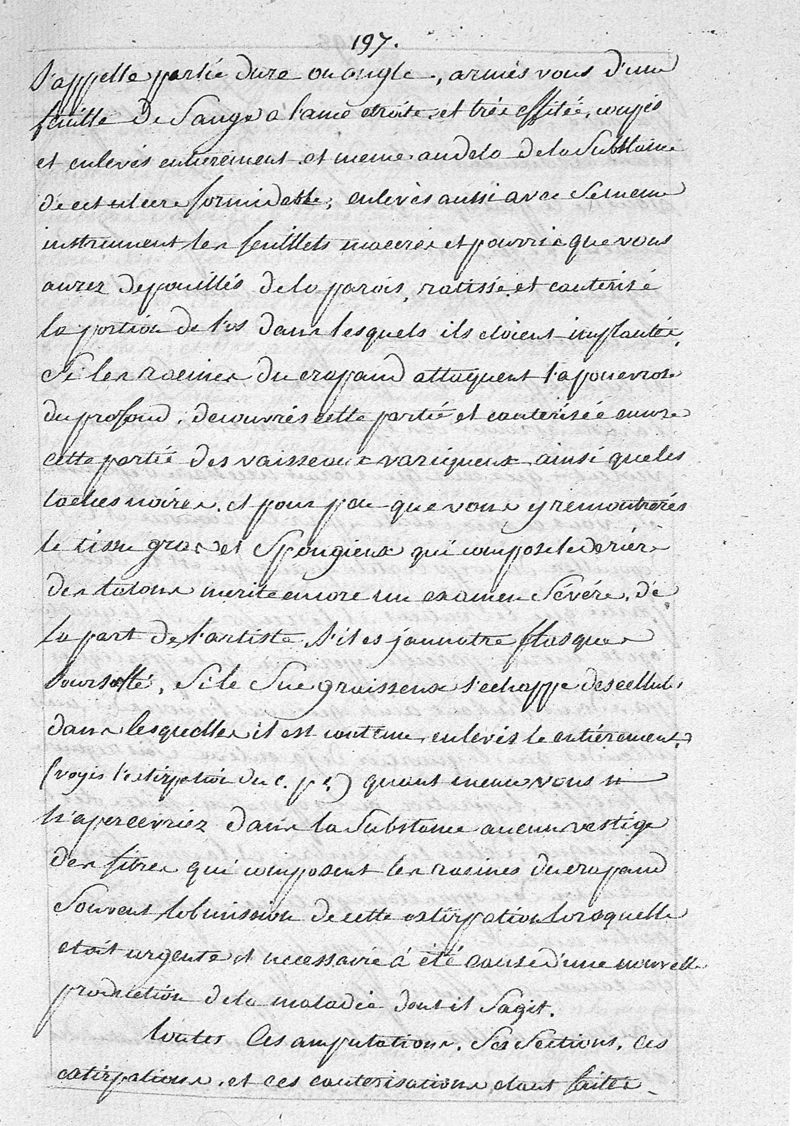 197.
S'appelle partie dure ou angle, armés vous d'une
feuille de Sauge a lame etroite et très effilée, coupés
et enlevés entierement et meme audela de la Substance
de cet ulcere formidable; enlevés aussi avec le meme
instrument les feuillets macerés et pourris que vous
aurez depouillés de la parois, ratissé et cauterisé
la portion de l'os dans lesquels ils etoient implantés.
Si les racines du crapaud attaquent l'aponevrose
du profond; decouvrés cette partié et cauterisée encore
cette partié des vaisseaux variqueux ainsi que les
taches noires, et pour peu que vous y remontrerés
le tissu gros et Spongieux qui compose le deriére
des talons merite encore un examen Sévére, de
la part de l'artiste, S'il es jaunatre flasque
boursoflé, Si le Suc graisseux s'echappe des cellul.
dans lesquelles il est contenu, enlevés le entiérement,
(voyés l'extirpation du c. p.) quant meme vous n
n'apercevriez dans la Substance aucun vestige
des fibres qui composent les racines du crapaud
Souvent l'obmission de cette extirpation lorsquelle
etoit urgente et necessaire à été cause d'une nouvelle
production de la maladié dont il S'agit.
toutes Ces amputations, Ses Sections, ces
extirpations, et ces cauterisations etant faites